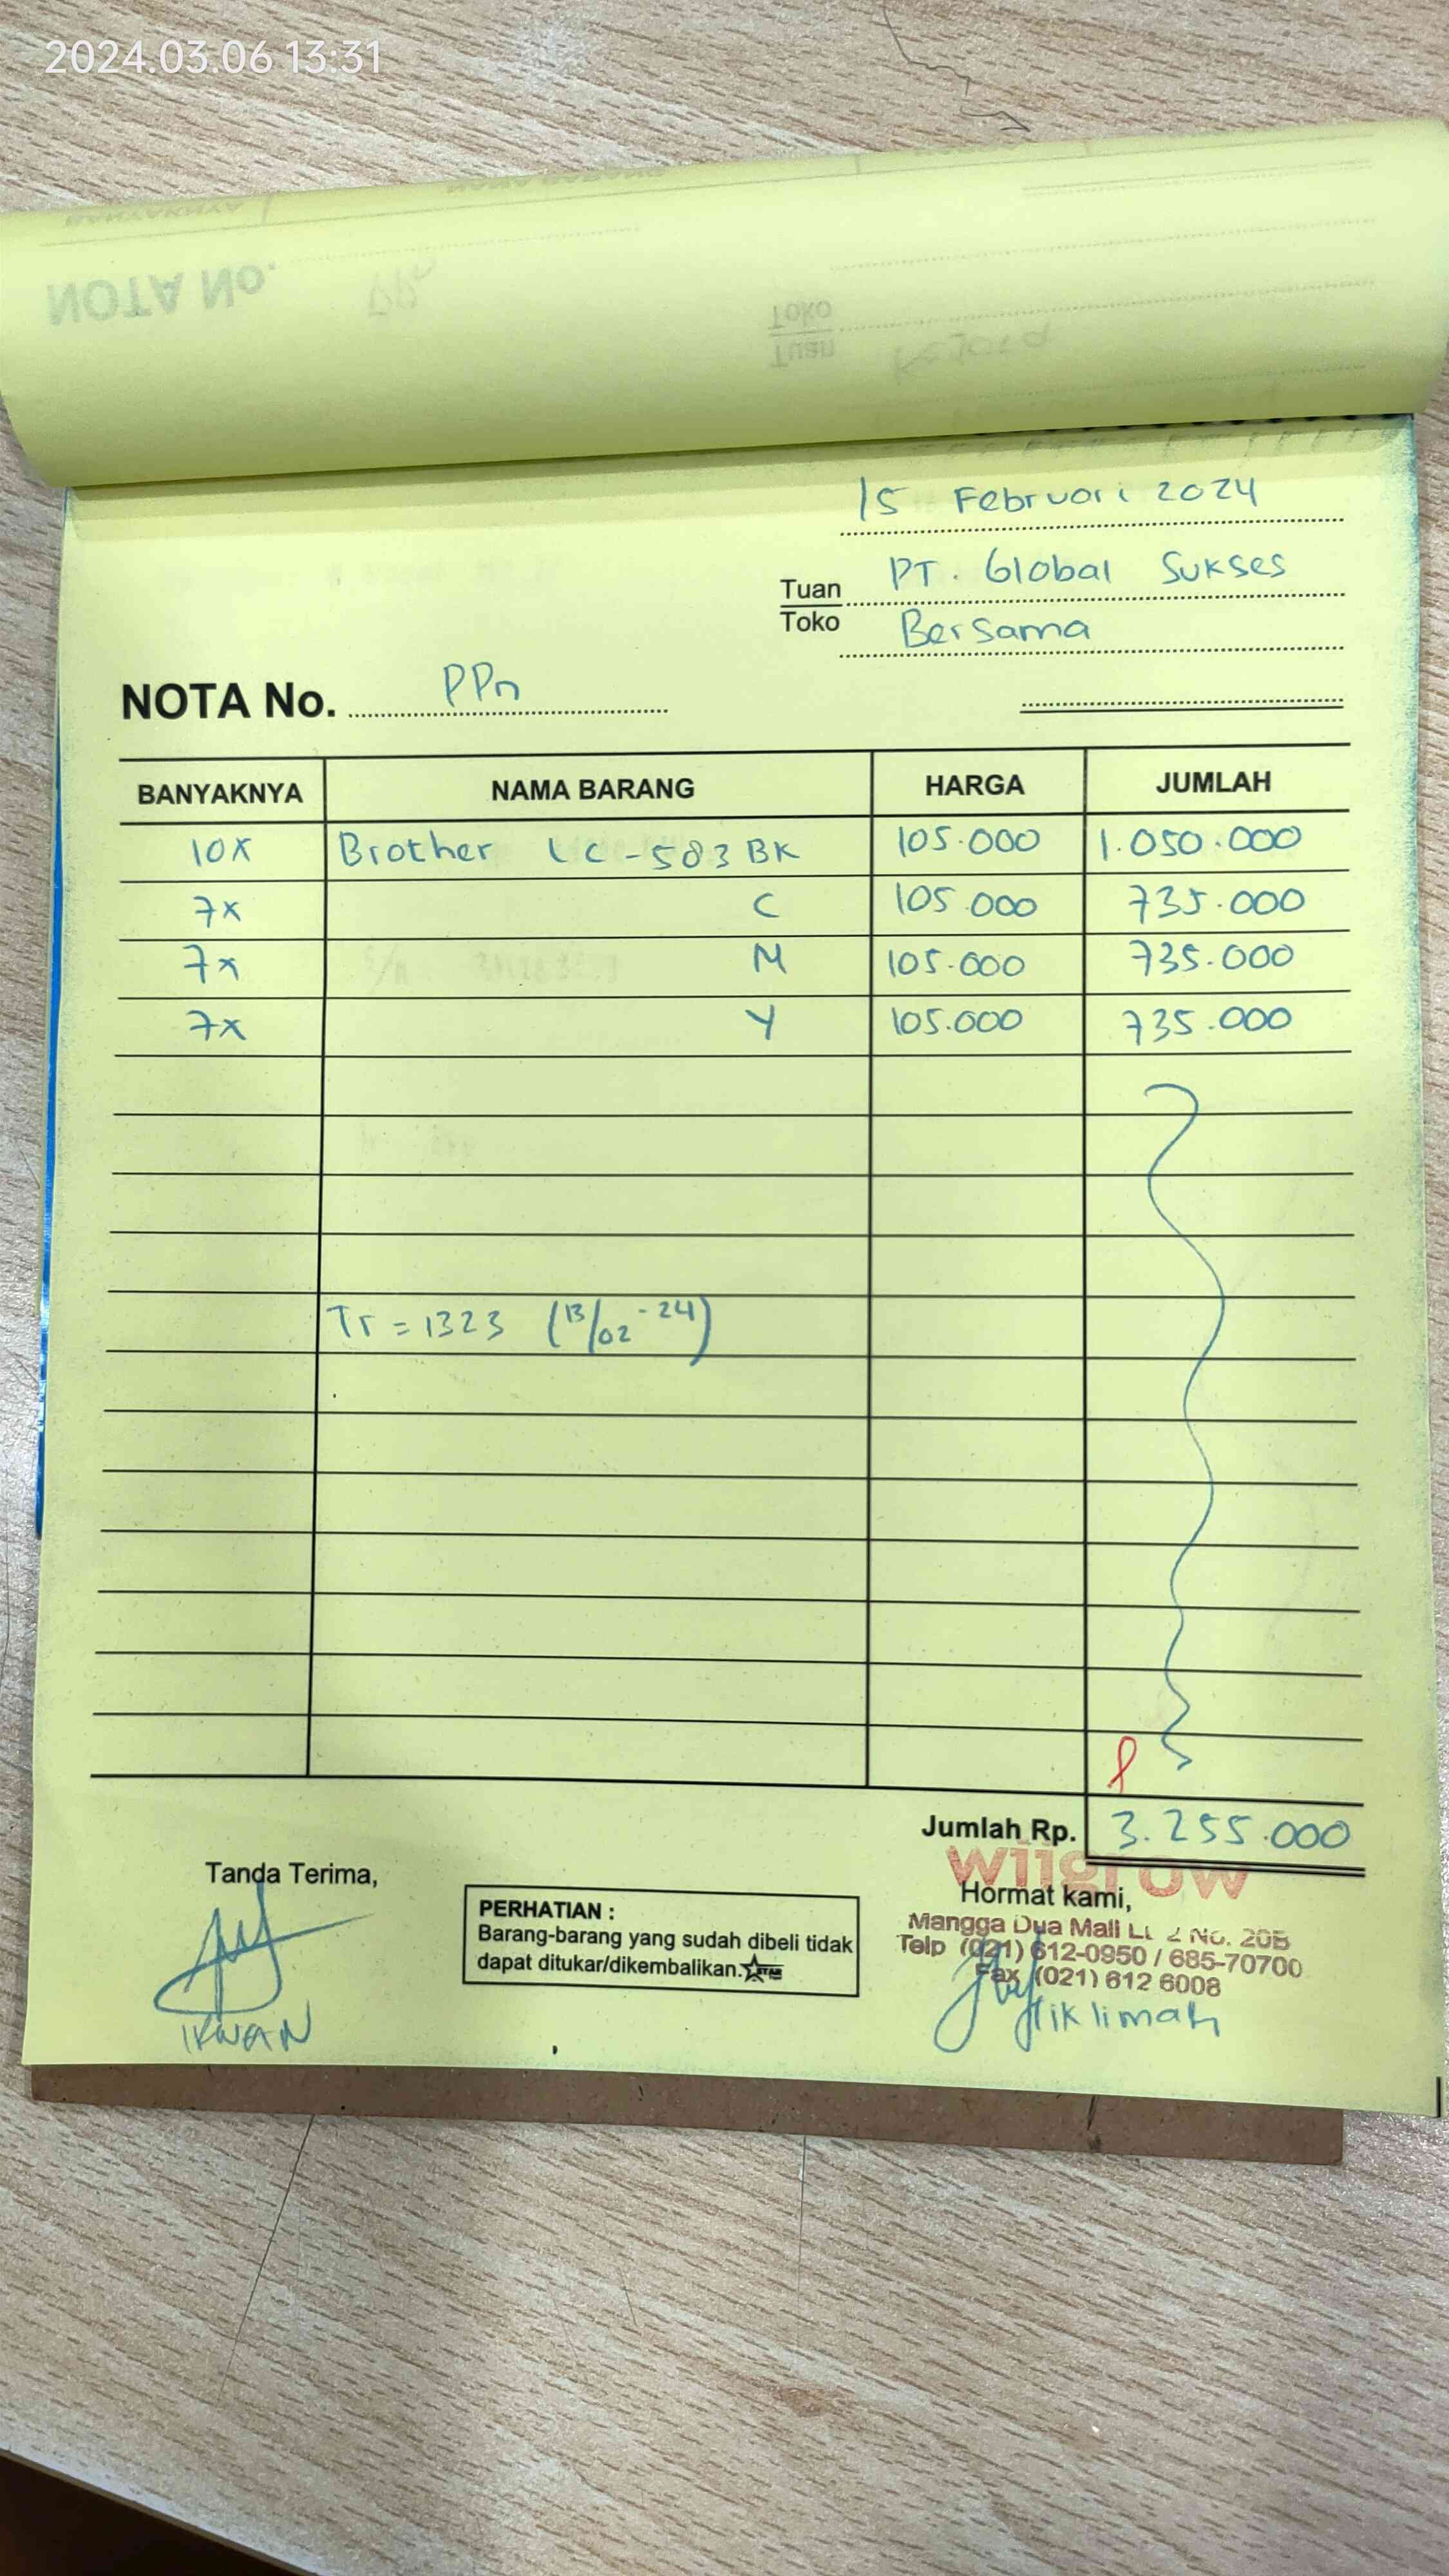 2024.03.06 13:31
NOTA No.
Toko
Tuan
15 Februari 2024
Tuan PT. Global Sukses
Toko Bersama
NOTA No. PPn
BANYAKNYA NAMA BARANG HARGA JUMLAH
10x Brother LC-583 BK 105.000 1.050.000
7x C 105.000 735.000
7x M 105.000 735.000
7x Y 105.000 735.000
Tr = 1323 (13/02-24)
Jumlah Rp. 3.255.000
Tanda Terima,
IKWAN
PERHATIAN :
Barang-barang yang sudah dibeli tidak
dapat ditukar/dikembalikan.
Hormat kami,
Mangga Dua Mall Lt. 2 No. 20B
Telp (021) 612-0950 / 685-70700
Fax (021) 612 6008